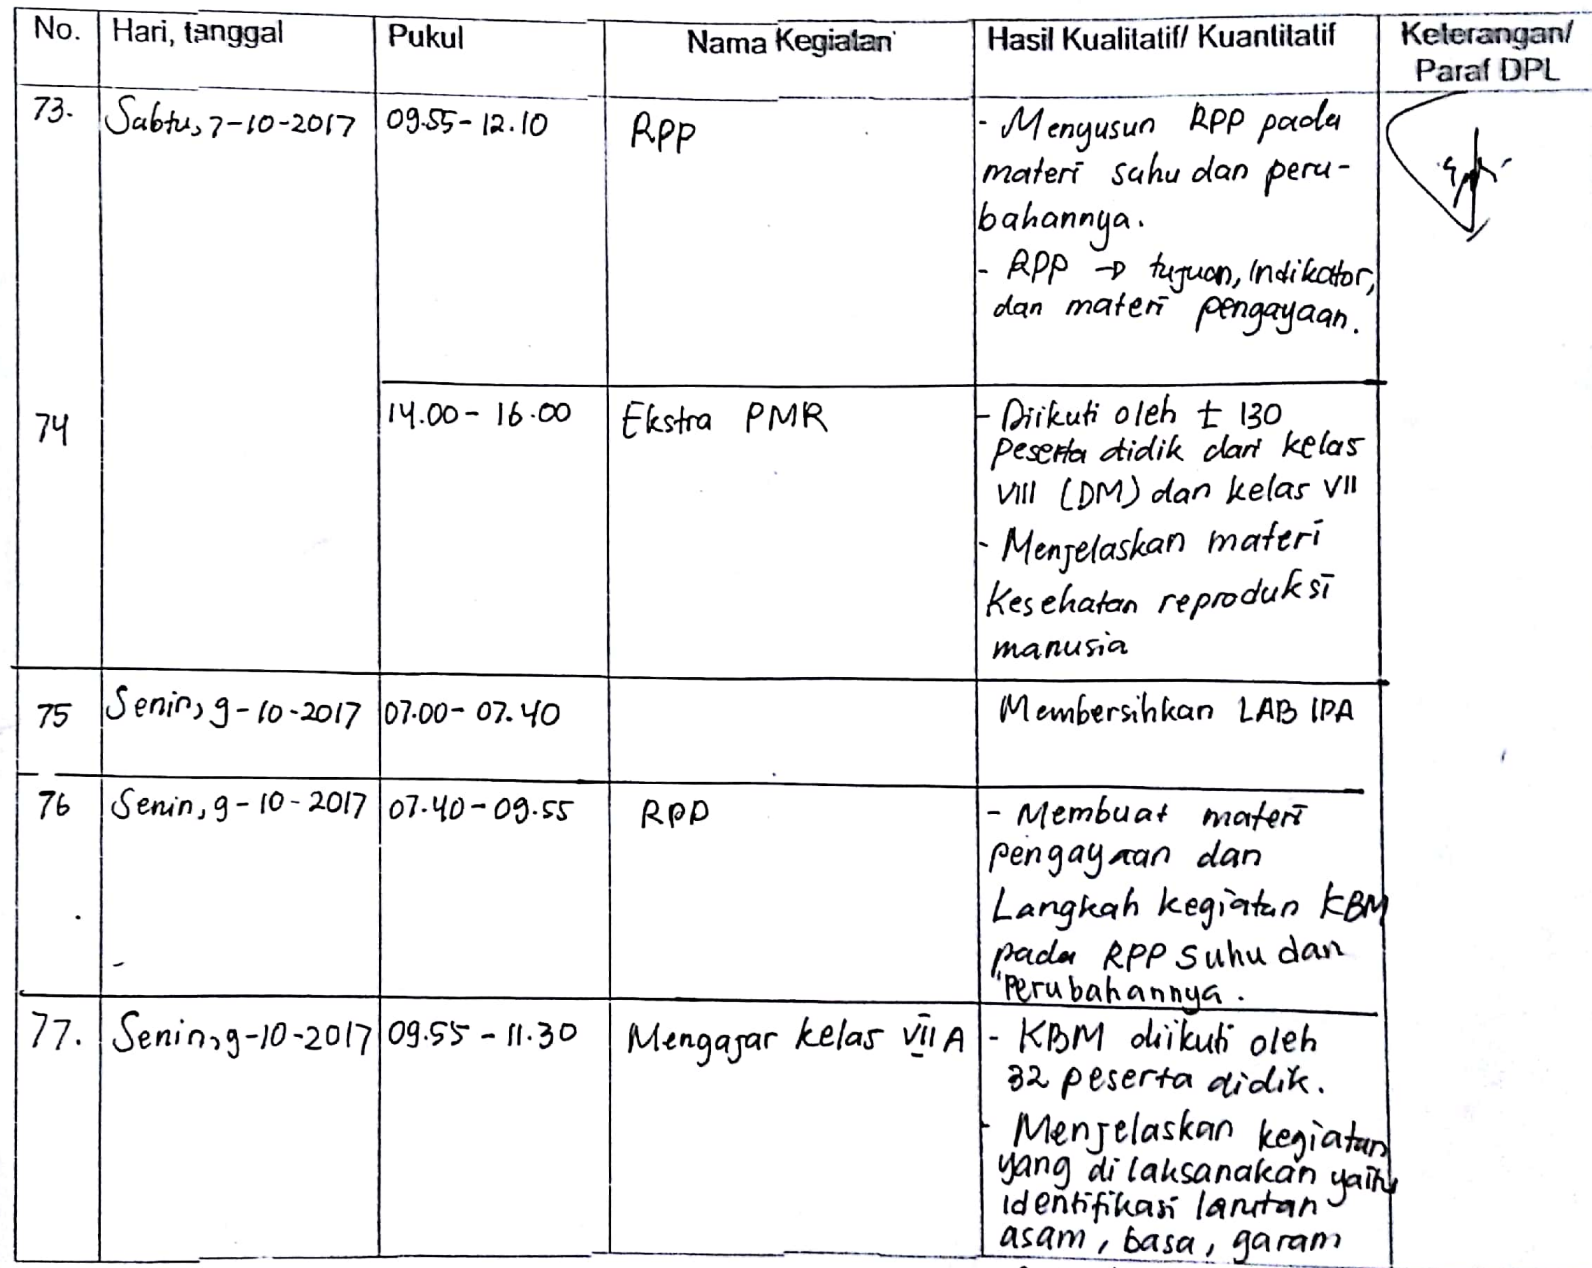 No. Hari, tanggal Pukul Nama Kegiatan Hasil Kualitatif/ Kuantitatif Keterangan/
Paraf DPL
73. Sabtu, 7-10-2017 09.55-12.10 RPP - Menyusun RPP pada
materi suhu dan peru-
bahannya.
- RPP → tujuan, Indikator,
dan materi pengayaan.
74 14.00 - 16.00 Ekstra PMR - Diikuti oleh ± 130
peserta didik dari kelas
VIII (DM) dan kelas VII
- Menjelaskan materi
Kesehatan reproduksi
manusia
75 Senin, 9-10-2017 07.00-07.40 Membersihkan LAB IPA
76 Senin, 9-10-2017 07.40-09.55 RPP - Membuat materi
pengayaan dan
Langkah kegiatan KBM
pada RPP Suhu dan
Perubahannya.
77. Senin, 9-10-2017 09.55 - 11.30 Mengajar kelas VII A - KBM diikuti oleh
32 peserta didik.
- Menjelaskan kegiatan
yang dilaksanakan yaitu
identifikasi larutan
asam, basa, garam